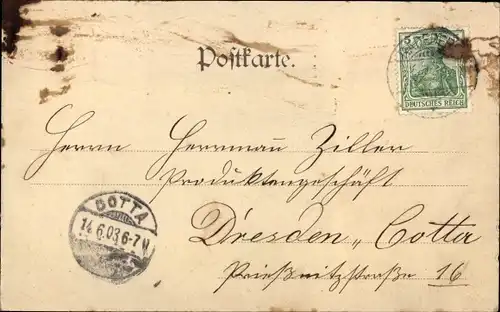 Postkarte.
DEUTSCHES REICH
Herrn Herrmann Ziller
Produktengeschäft
Dresden „Cotta
Prießnitzstraße 16
COTTA
14.6.03.6-7N